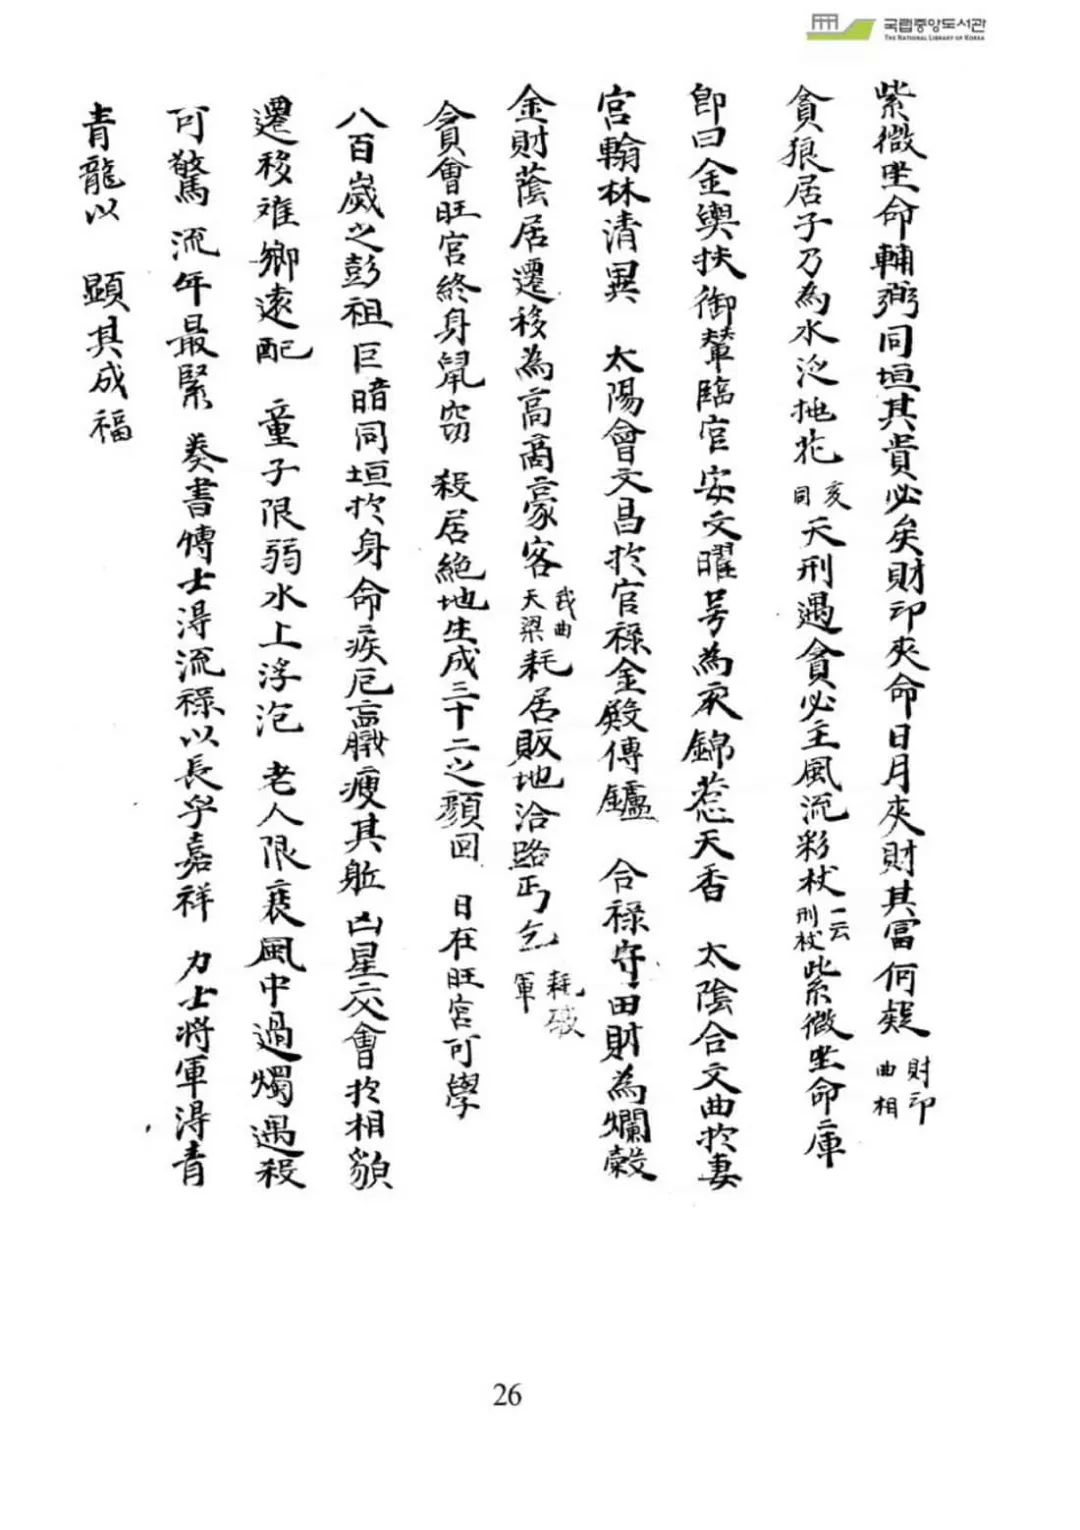 국립중앙도서관
THE NATIONAL LIBRARY OF KOREA
紫微坐命輔弼同垣其貴必矣財印夾命日月夾財其富何疑 財印曲相
貪狼居子乃為水泛桃花 亥同 天刑遇貪必主風流彩杖 一云刑杖 紫微坐命庫
卽曰金輿扶御輦臨官安文曜号為衣錦惹天香 太陰合文曲於妻
宮翰林清異 太陽會文昌於官祿金殿傳鑪 合祿守田財為爛穀
金財蔭居遷移為高商豪客 武曲天梁 耗居敗地沿路丐乞 耗破軍
貪會旺宮終身鼠窃 殺居絶地生成三十二之顏回 日在旺宮可學
八百歲之彭祖 巨暗同垣於身命疾厄羸瘦其躯 凶星交會於相貌
遷移难鄉遠配 童子限弱水上浮泡 老人限衰風中過燭遇殺
可驚流年最緊 奏書博士淂流祿以長乎嘉祥 力士將軍淂青
青龍以 顯其成福
26